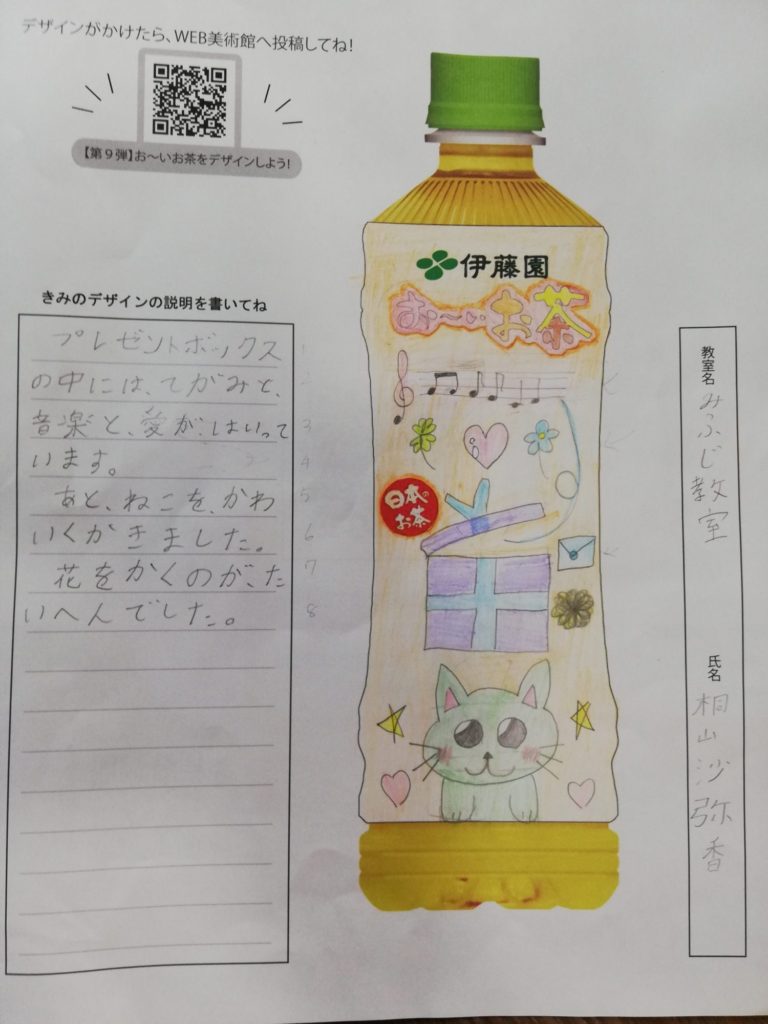 デザインがかけたら、WEB美術館へ投稿してね!
【第9弾】お~いお茶をデザインしよう!
きみのデザインの説明を書いてね
プレゼントボックス
の中には、てがみと、
音楽と、愛が、はいって
います。
あと、ねこを、かわ
いくかきました。
花をかくのが、た
いへんでした。
1
2
3
4
5
6
7
8
伊藤園
お~いお茶
日本の
お茶
教室名
みふじ教室
氏名
桐山沙弥香